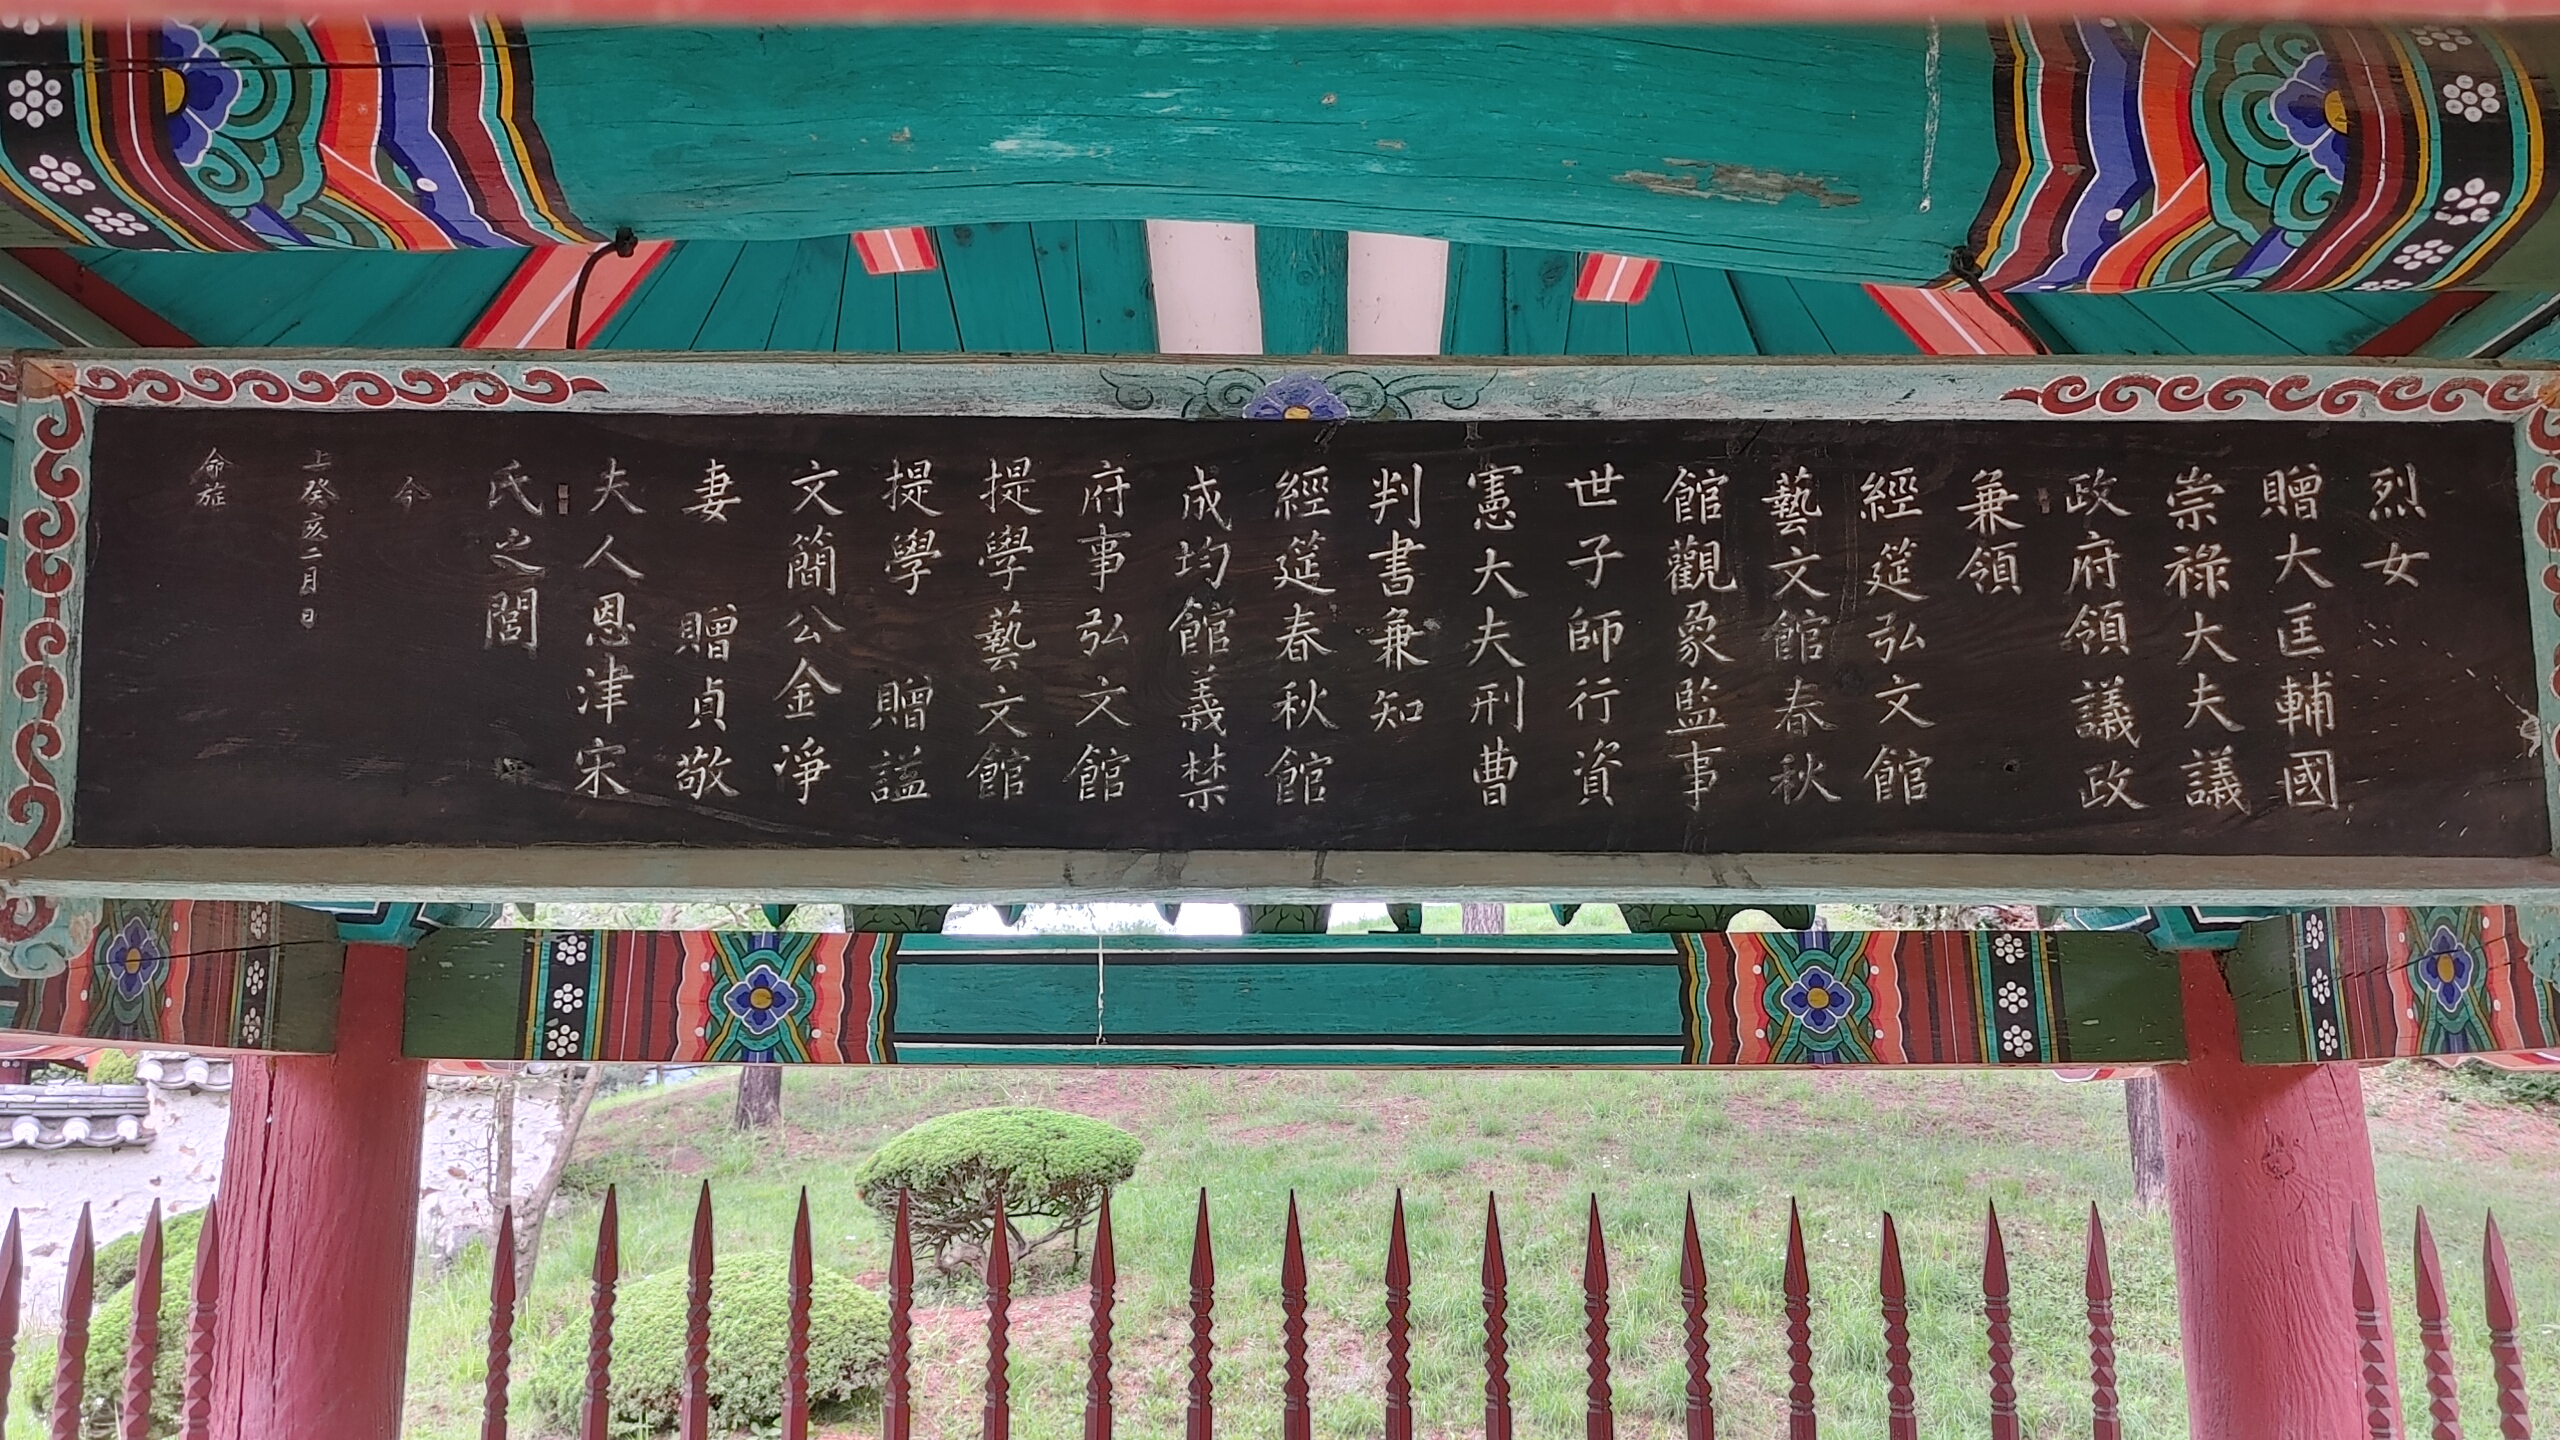 烈女
贈大匡輔國
崇祿大夫議
政府領議政
兼領
經筵弘文館
藝文館春秋
館觀象監事
世子師行資
憲大夫刑曹
判書兼知
經筵春秋館
成均館義禁
府事弘文館
提學藝文館
提學 贈諡
文簡公金淨
妻 贈貞敬
夫人恩津宋
氏之閭
今
上癸亥二月日
命旌